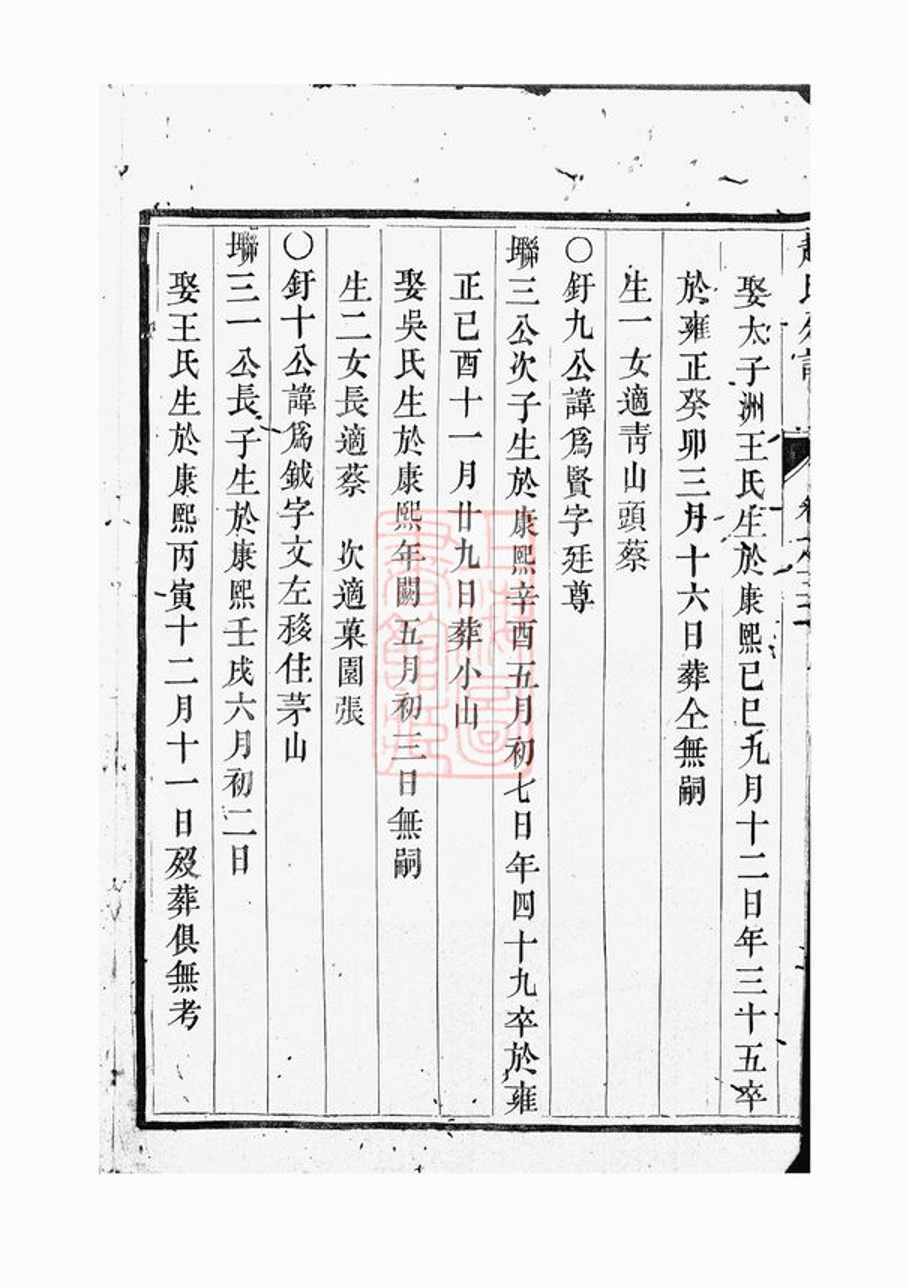 娶太子洲王氏生於康熙己巳九月十二日年三十五卒
於雍正癸卯三月十六日葬仝無嗣
生一女適靑山頭蔡
〇釪九公諱爲賢字廷尊
聯三公次子生於康熙辛酉五月初七日年四十九卒於雍
正己酉十一月廿九日葬小山
娶吳氏生於康熙年闕五月初三日無嗣
生二女長適蔡　次適菓園張
〇釪十公諱爲鉞字文左移住茅山
聯三一公長子生於康熙壬戌六月初二日
娶王氏生於康熙丙寅十二月十一日歿葬俱無考
上海圖書館藏